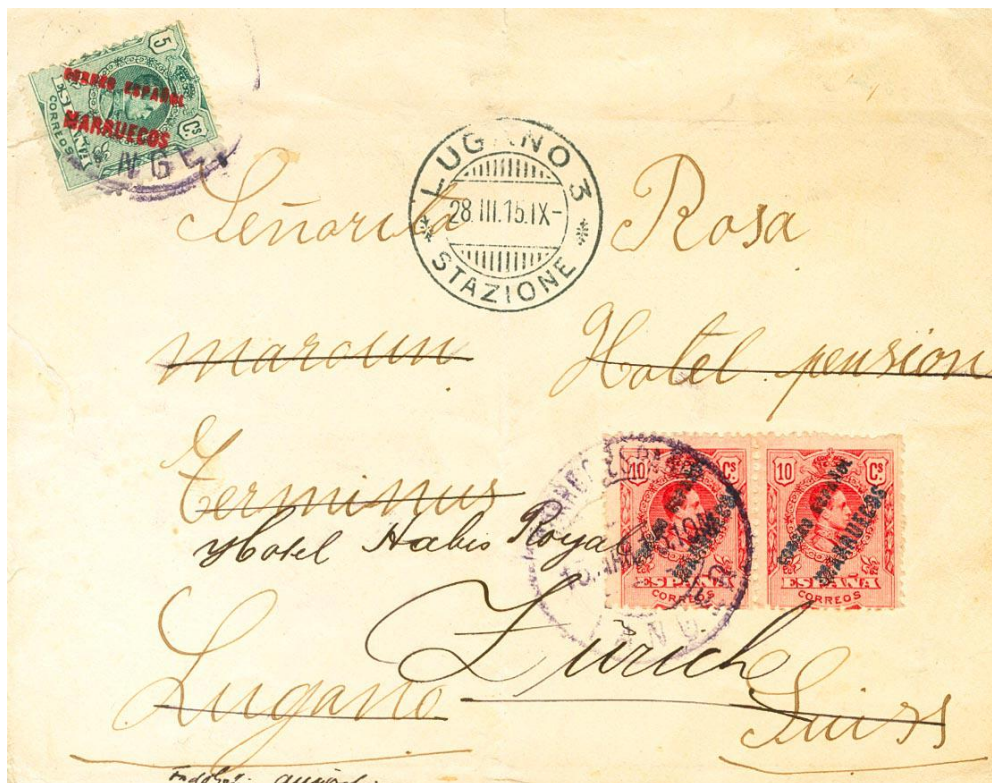 5 Cs
CORREO ESPAÑOL
MARRUECOS
CORREOS
LUGANO 3
28.III.15.IX-
STAZIONE
Señorita Rosa
maroun Hotel pension
Terminus
Hotel Habis Royal
Zürich
Lugano Suiza
10 Cs
CORREO ESPAÑOL
MARRUECOS
ESPAÑA
CORREOS
10 Cs
CORREO ESPAÑOL
MARRUECOS
ESPAÑA
CORREOS